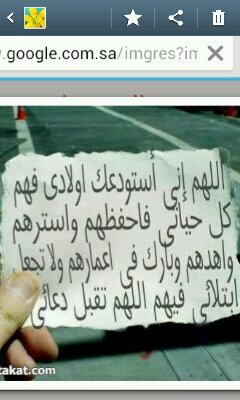 .google.com.sa/imgres?im
اللهم إني أستودعك اولادى فهم
كل حياتي فاحفظهم واسترهم
واهدهم وبارك في اعمارهم ولا تجعل
ابتلائي فيهم اللهم تقبل دعائي
takat.com